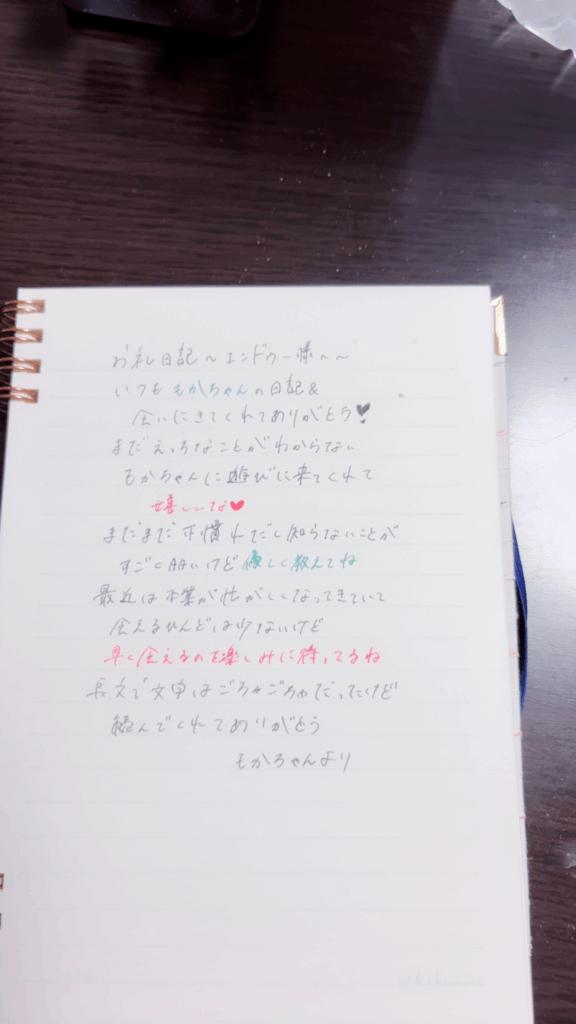 お礼日記〜エンドゥー様へ〜
いつももかちゃんの日記&
会いにきてくれてありがとう
まだえっちなことがわからない
もかちゃんに遊びに来てくれて
嬉しいな
まだまだ不慣れだし知らないことが
すごく多いけど優しく教えてね
最近は本業が忙がしくなってきていて
会えるひんどは少ないけど
早く会えるのを楽しみに待ってるね
長文で文章はごちゃごちゃだったけど
読んでくれてありがとう
もかちゃんより